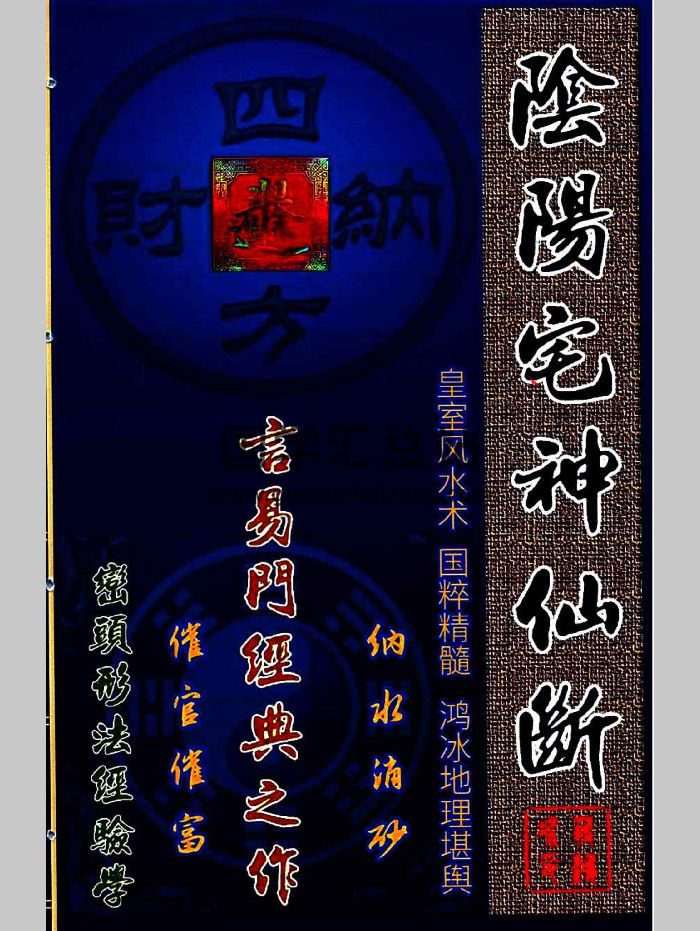 陰陽宅神仙斷
皇室风水术 国粹精髓 鸿冰地理堪舆
纳水消砂
言易門經典之作
催官催富
巒頭形法經驗学
四
方
納
財
国学汇总